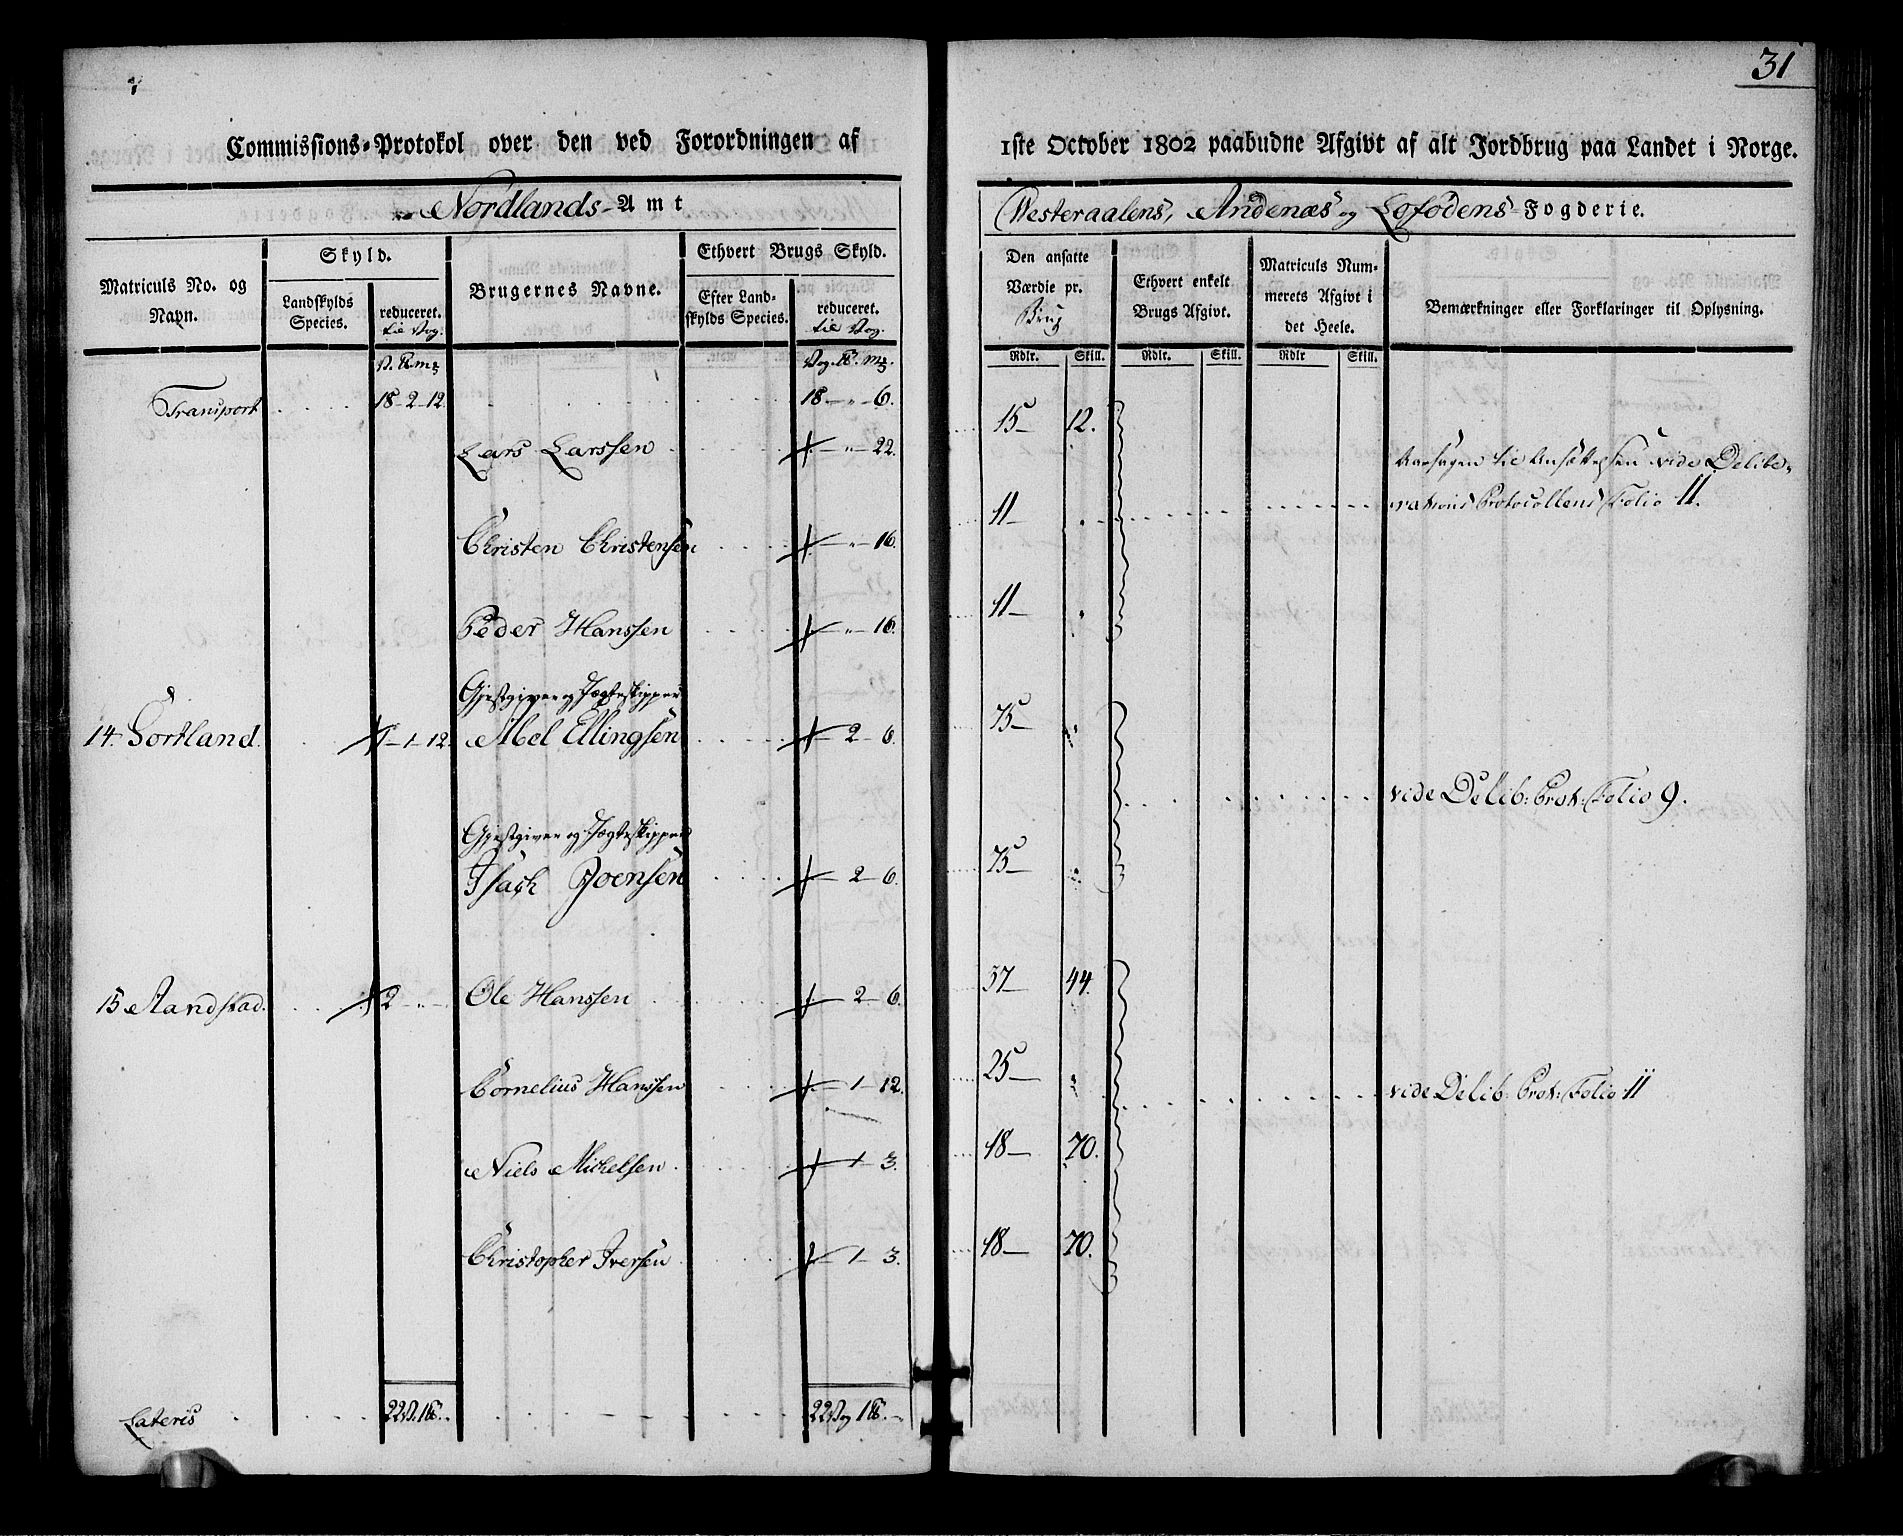 31
Commissions-Protokol over den ved Forordningen af 1ste October 1802 paabudne Afgivt af alt Jordbrug paa Landet i Norge.
Nordlands-Amt Westeraalens, Andenæs og Lofodens-Fogderie.
Matriculs No. og Navn.
Skyld.
Landskylds Species.
reduceret.
til Vog.
Brugernes Navne.
Ethvert Brugs Skyld.
Efter Landskylds Species.
reduceret.
til Vog.
Den ansatte Værdie pr.
Brug
Ethvert enkelt Brugs Afgivt.
Matriculs Nummerets Afgivt i det Heele.
Bemærkninger eller Forklaringer til Oplysning.
Rdlr. Skill. Rdlr. Skill. Rdlr Skill.
Transport 18-2-12. 18-"-6.
Lars Larssen "-22. 15- 12.
Aarsagen til Ansættelsen vide Delibe-
rations Protocollens Folio 11.
Christen Christensen "-16. 11-
Peder Hanssen "-16. 11-
Gjestgiver og Jægteskipper
14. Sortland. 1-1-12. Abel Ellingsen 2-6. 75-
vide Delib: Prot: Folio 9.
Gjestgiver og Jægteskipper
Isach Joensen 2-6. 75-
15 Sandstad. 2-"- Ole Hanssen 2-6. 37- 44.
Cornelius Hanssen 1-12. 25-
vide Delib: Prot: Folio 11
Niels Michelsen 1-3. 18- 70.
Christopher Iversen 1-3. 18- 70.
Lateris 22 V. 1 22 Vog 1